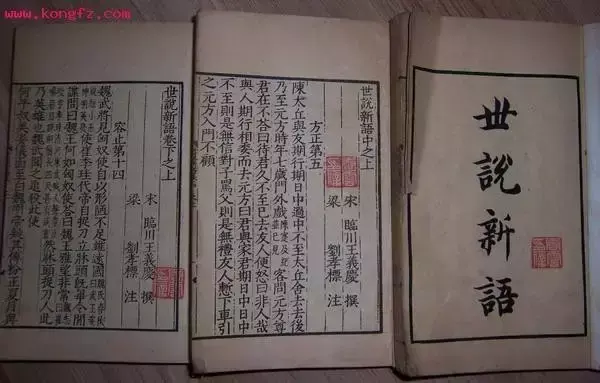 www.kongfz.com
世說新語
世說新語中之上
宋 臨川王義慶 撰
梁 劉孝標 注
方正第五
陳太丘與友期行期日中過中不至太丘舍去去後
乃至元方時年七歲門外戲陳寔及紀並已見客問元方尊
君在不答曰待君久不至已去友人便怒曰非人哉
與人期行相委而去元方曰君與家君期日中日中
不至則是無信對子罵父則是無禮友人慙下車引
之元方入門不顧
世說新語卷下之上
宋 臨川王義慶 撰
梁 劉孝標 注
容止第十四
魏武將見匈奴使自以形陋不足雄遠國魏氏春秋曰武王
使崔季珪代帝自捉刀立牀頭既畢令間
諜問曰魏王何如匈奴使答曰魏王雅望非常
然牀頭捉刀人此
乃英雄也魏武聞之追殺此使
何平叔美姿儀面至白魏明帝疑其傅粉正夏月與